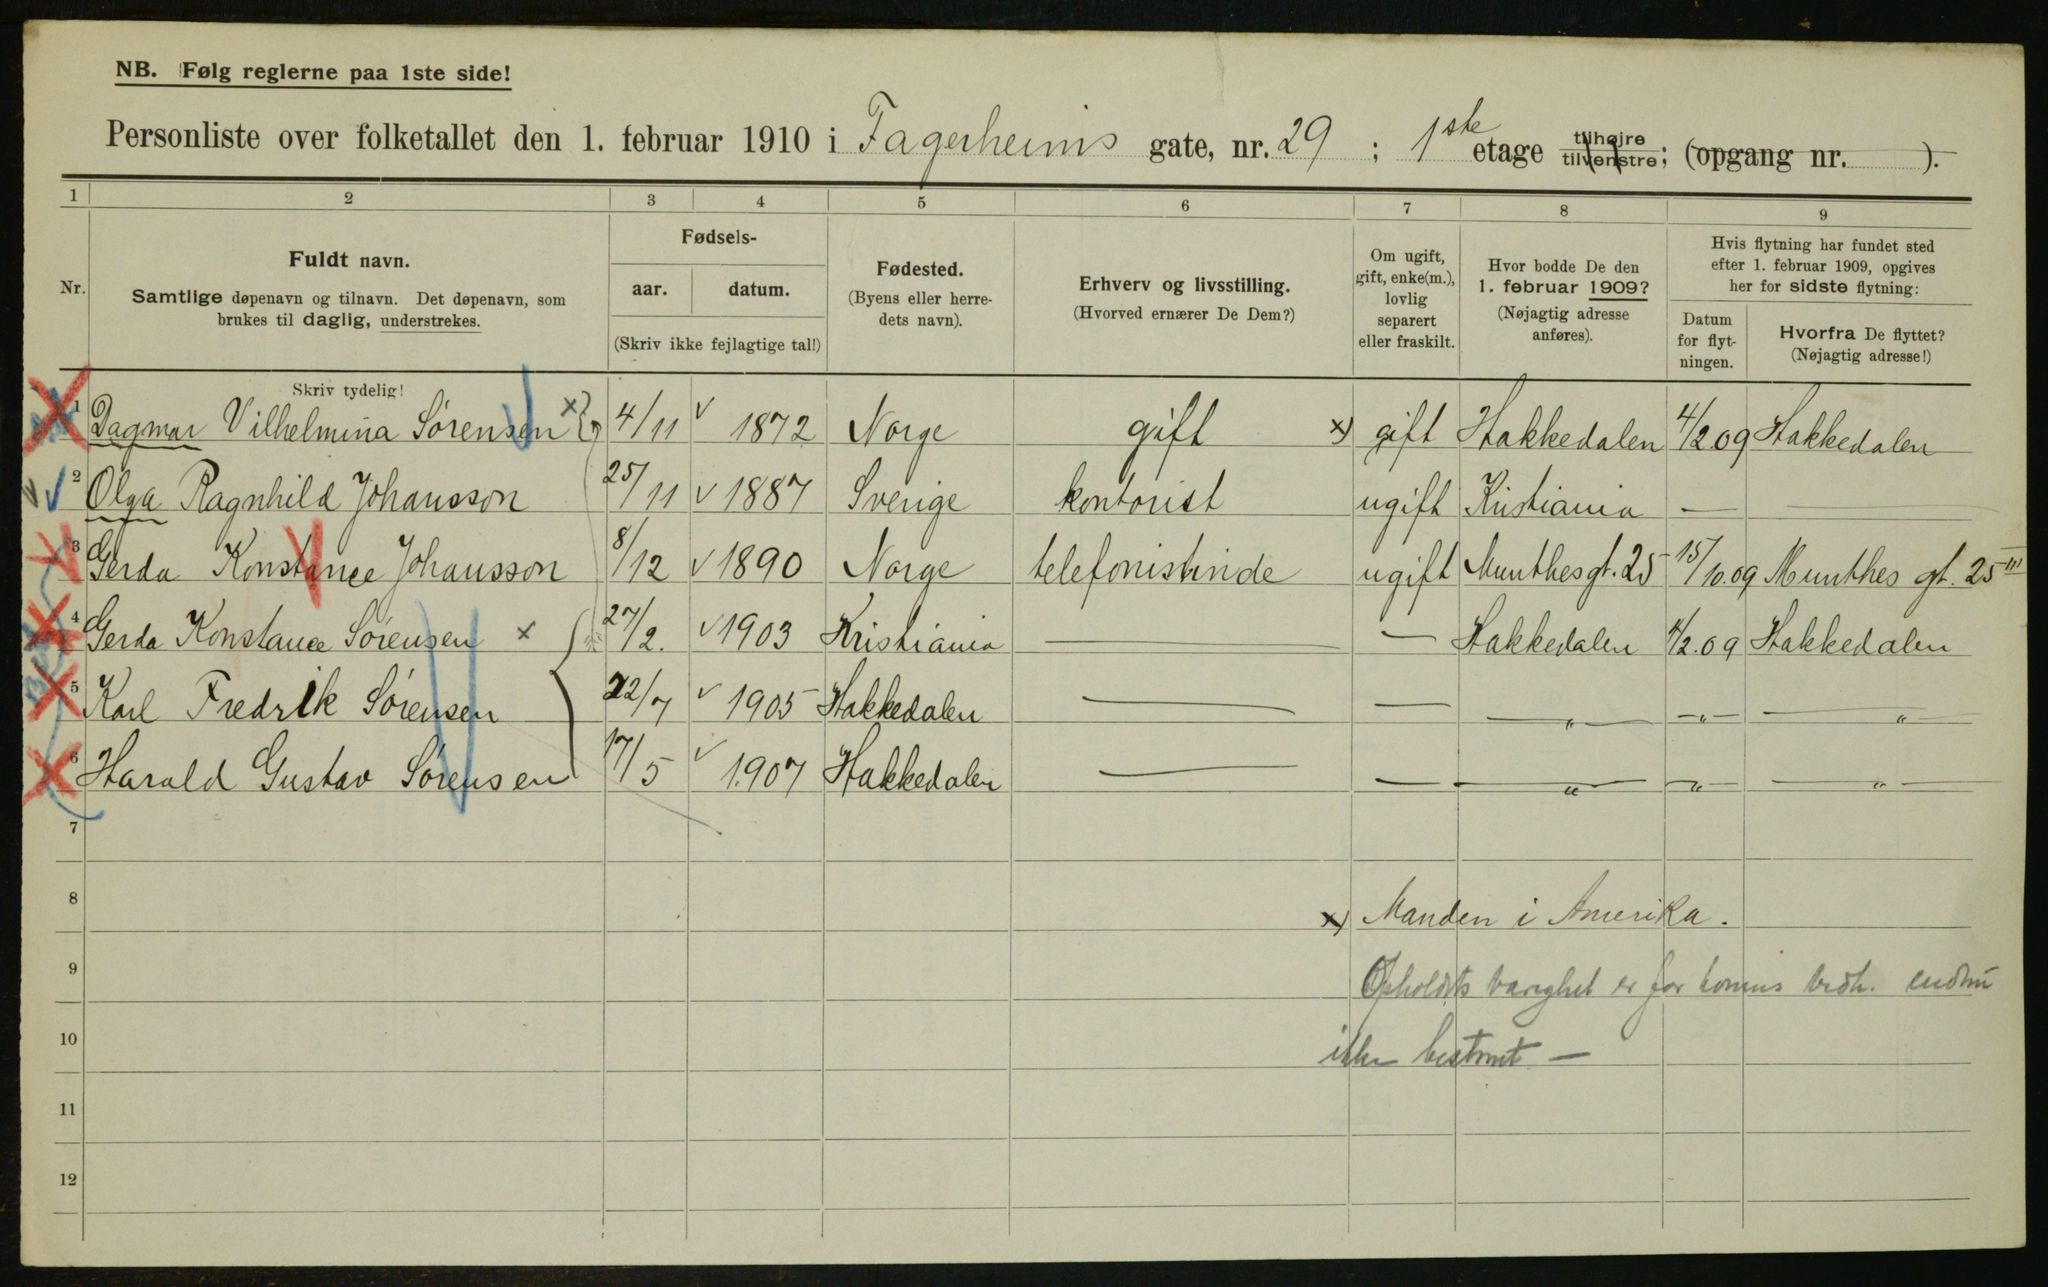 NB. Følg reglerne paa 1ste side!
Personliste over folketallet den 1. februar 1910 i Fagerheims gate, nr. 29 ; 1ste etage tilhøjre tilvenstre; (opgang nr. ).
1 2 3 4 5 6 7 8 9
Nr.
Fuldt navn.
Samtlige døpenavn og tilnavn. Det døpenavn, som
brukes til daglig, understrekes.
Skriv tydelig!
Fødsels-
aar. datum.
(Skriv ikke fejlagtige tal!)
Fødested.
(Byens eller herre-
dets navn).
Erhverv og livsstilling.
(Hvorved ernærer De Dem?)
Om ugift,
gift, enke(m.),
lovlig
separert
eller fraskilt.
Hvor bodde De den
1. februar 1909?
(Nøjagtig adresse
anføres).
Hvis flytning har fundet sted
efter 1. februar 1909, opgives
her for sidste flytning:
Datum
for flyt-
ningen.
Hvorfra De flyttet?
(Nøjagtig adresse!)
1 Dagmar Vilhelmina Sørensen x 4/11 1872 Norge gift x) gift Hakkedalen 4/2.09 Hakkedalen
2 Olga Ragnhild Johansson 25/11 1887 Sverige kontorist ugift Kristiania — —
3 Gerda Konstance Johansson 8/12 1890 Norge telefonistinde ugift Munthesgt. 25 15/10.09 Munthes gt. 25 III
4 Gerda Konstance Sørensen x 27/2. 1903 Kristiania — — Hakkedalen 4/2.09 Hakkedalen
5 Karl Fredrik Sørensen 22/7 1905 Hakkedalen — — —"— —"— —"—
6 Harald Gustav Sørensen 17/5 1907 Hakkedalen — — —"— —"— —"—
7
8 x) Manden i Amerika.
9 Opholdets varighet er for vedk. endnu
10 ikke bestemt —
11
12